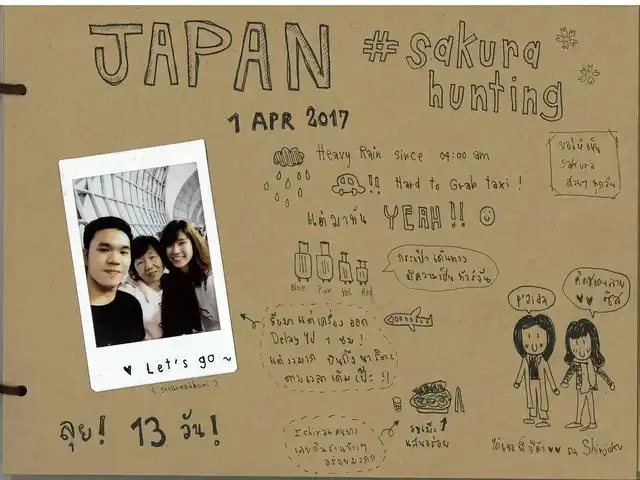 JAPAN #sakura
hunting
1 APR 2017
Heavy Rain since 04:00 am
!! Hard to Grab taxi !
แต่มาทัน YEAH !!
ขอให้เห็น
sakura
สวยๆ ทุกวัน
กระเป๋าเดินทาง
มีความเป็นทัวร์จีน
Blue Pink Yel Red
รีบมา แต่เครื่อง ออก
Delay ไป 1 ชม !
แต่งงมาก บินถึง
ตามเวลาเดิม เป๊ะ !!
P'Jida
คิดชุดหลาย
♥ Let's go ~
(suvarnabhumi)
ลุย! 13 วัน!
Ichiran คนยาว
เลยกินร้านข้างๆ
อร่อย
แสนอร่อย
ได้เจอ พี่จีด้า ♥♥ ณ Shinjuku